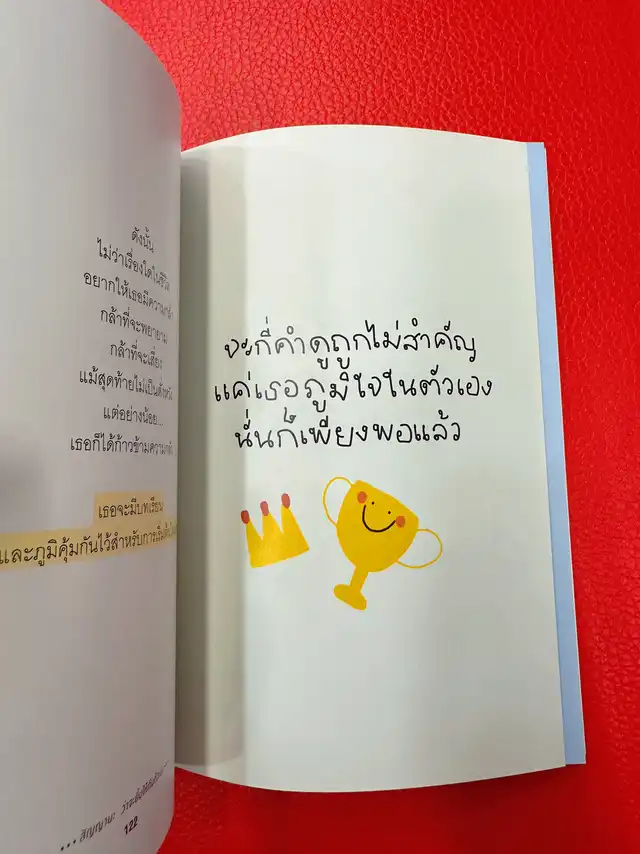 ดังนั้น
ไม่ว่าเรื่องใดในชีวิต
อยากให้เธอมีความกล้า
กล้าที่จะพยายาม
กล้าที่จะเสี่ยง
แม้สุดท้ายไม่เป็นดั่งหวัง
แต่อย่างน้อย...
เธอก็ได้ก้าวข้ามความกลัว
เธอจะมีบทเรียน
และภูมิคุ้มกันไว้สำหรับการ
••• สัญญานะ ว่าจะ
122
จะกี่คำดูถูกไม่สำคัญ
แค่เธอภูมิใจในตัวเอง
นั่นก็เพียงพอแล้ว